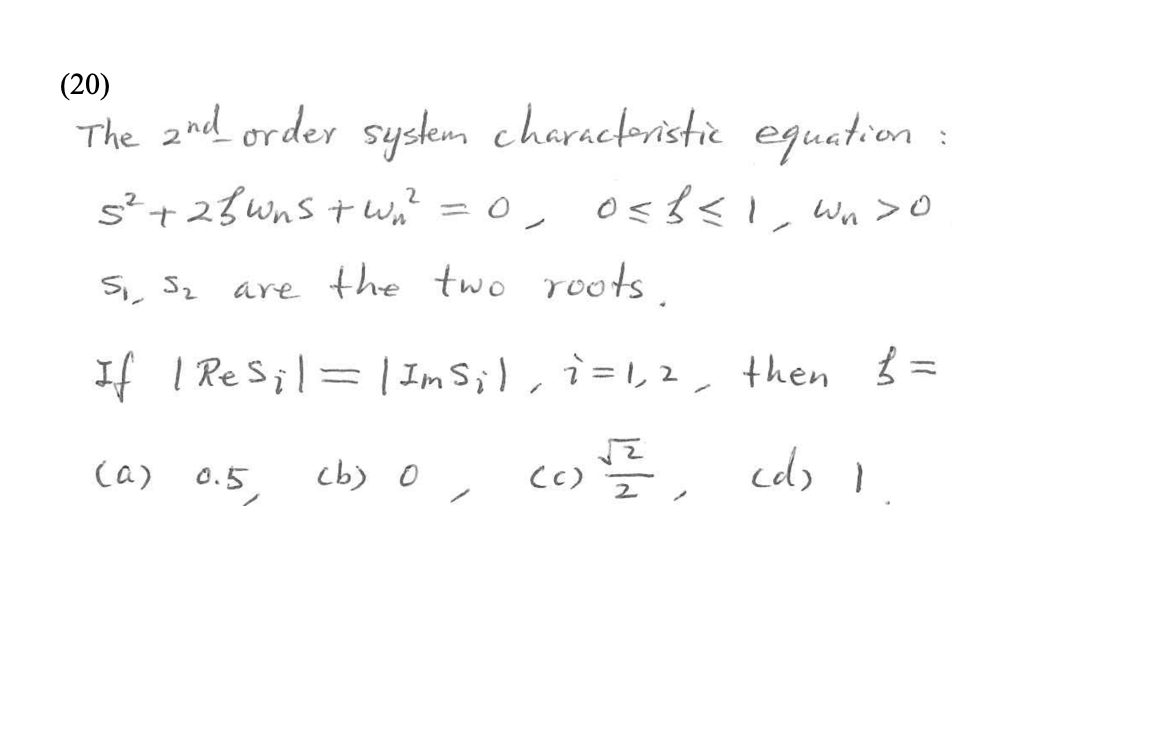 (20)
The 2nd order system characteristic equation :
s² + 2ζωₙs + ωₙ² = 0, 0 ≤ ζ ≤ 1, ωₙ > 0
s₁, s₂ are the two roots.
If |Re sᵢ| = |Im sᵢ|, i = 1, 2, then ζ =
(a) 0.5, (b) 0, (c) √2/2, (d) 1.